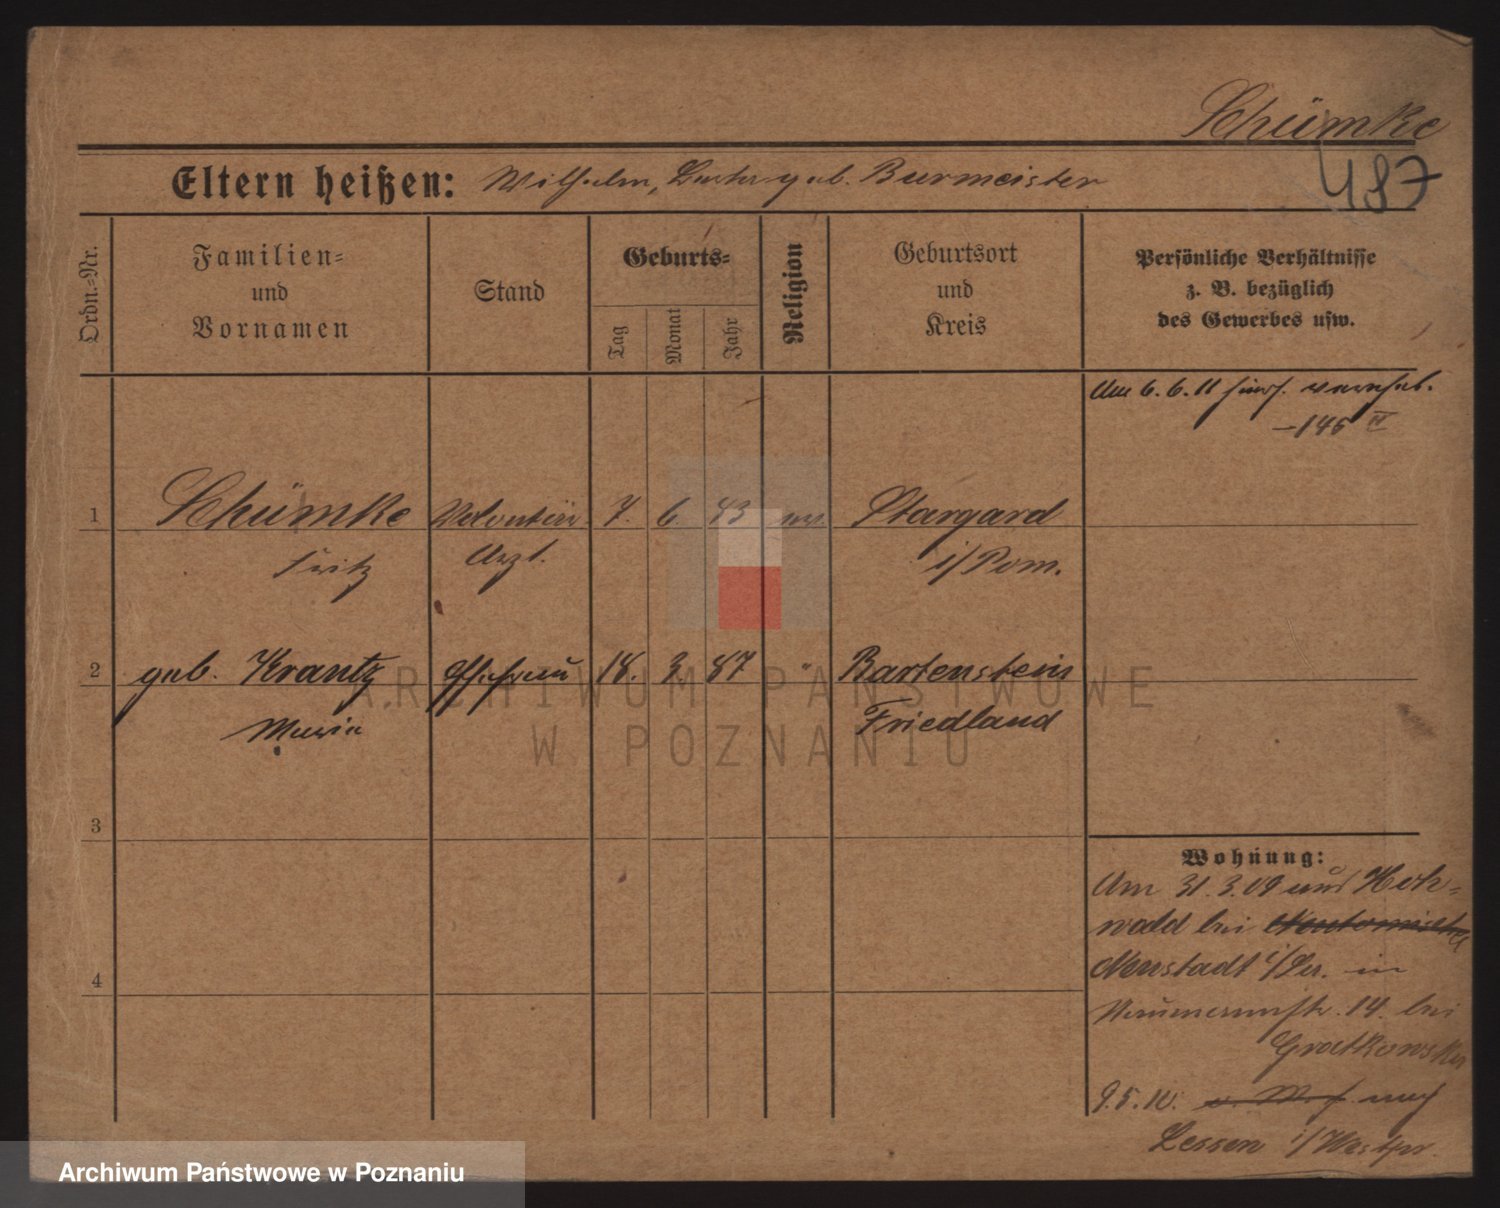 Schümke
487
Eltern heißen: Wilhelm, geb. Burmeister
Ordn.-Nr.
Familien-
und
Vornamen
Stand
Geburts-
Tag
Monat
Jahr
Religion
Geburtsort
und
Kreis
Persönliche Verhältnisse
z. B. bezüglich
des Gewerbes usw.
Am 6.6.11
146 II
1 Schümke Volontär 7. 6. 83 ev. Stargard
Fritz Arzt. i/Pom.
2 geb. Krantz Ehefrau 18. 3. 87 " Bartenstein
Marie Friedland
3
4
Wohnung:
Am 31.3.09 aus Hoh-
wald bei
Neustadt in
14. bei
Gratkowski
9.5.10. nach
Lessen i/Westpr.
ARCHIWUM PAŃSTWOWE
W POZNANIU
Archiwum Państwowe w Poznaniu